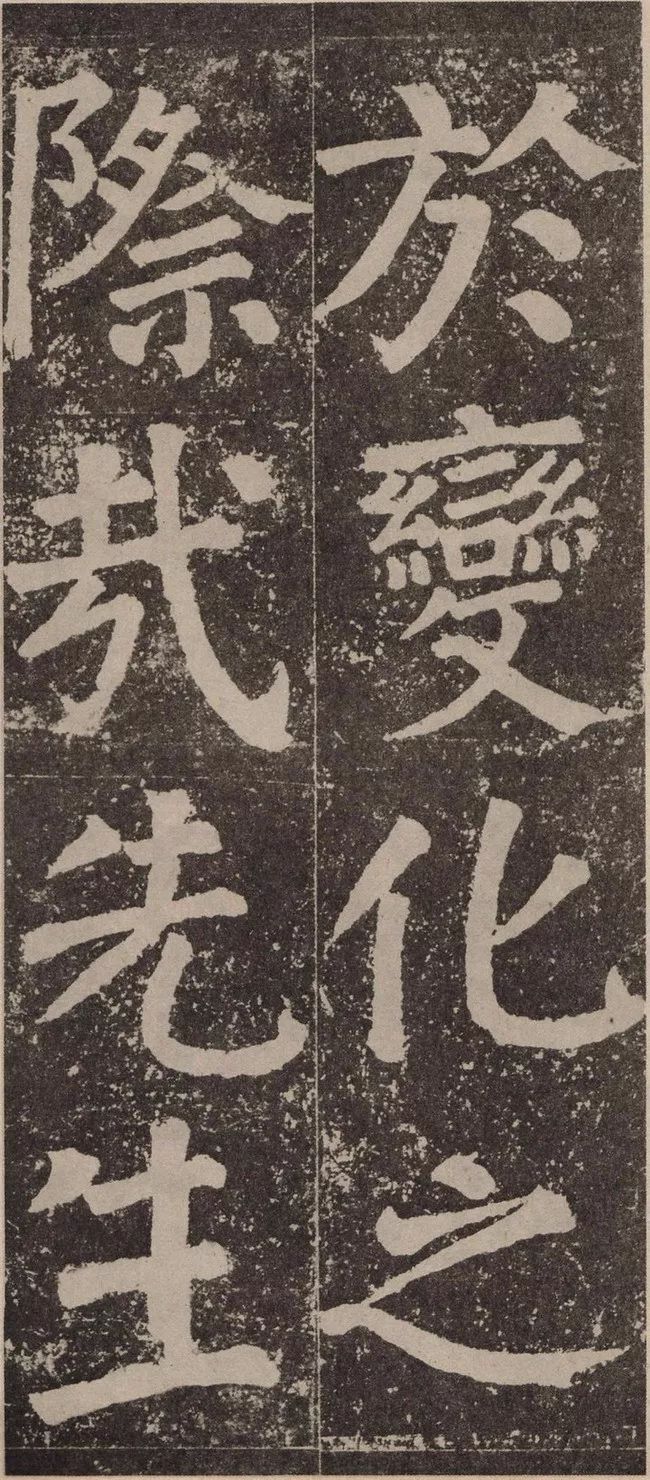 於變化之
際哉先生